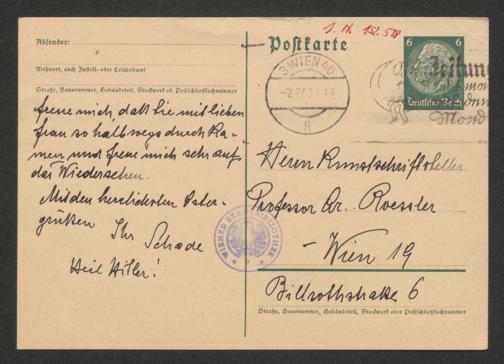 Absender:
Wohnort, auch Zustell- oder Leitpostamt
Straße, Hausnummer, Gebäudeteil, Stockwerk od. Postschließfachnummer
freue mich, daß Sie mit lieben
Frau so halbwegs durch ka-
men und freue mich sehr auf
das Wiedersehen.
Mit den herzlichsten Oster-
grüßen Ihr Schade
Heil Hitler!
Postkarte
3 WIEN 40
R
6 6
Deutsches Reich
Zeitung
Mond
Herrn Kunstschriftsteller
Professor Dr. Roessler
– Wien 19
Billrothstraße 6
Straße, Hausnummer, Gebäudeteil, Stockwerk oder Postschließfachnummer
WIENER STADTBIBLIOTHEK